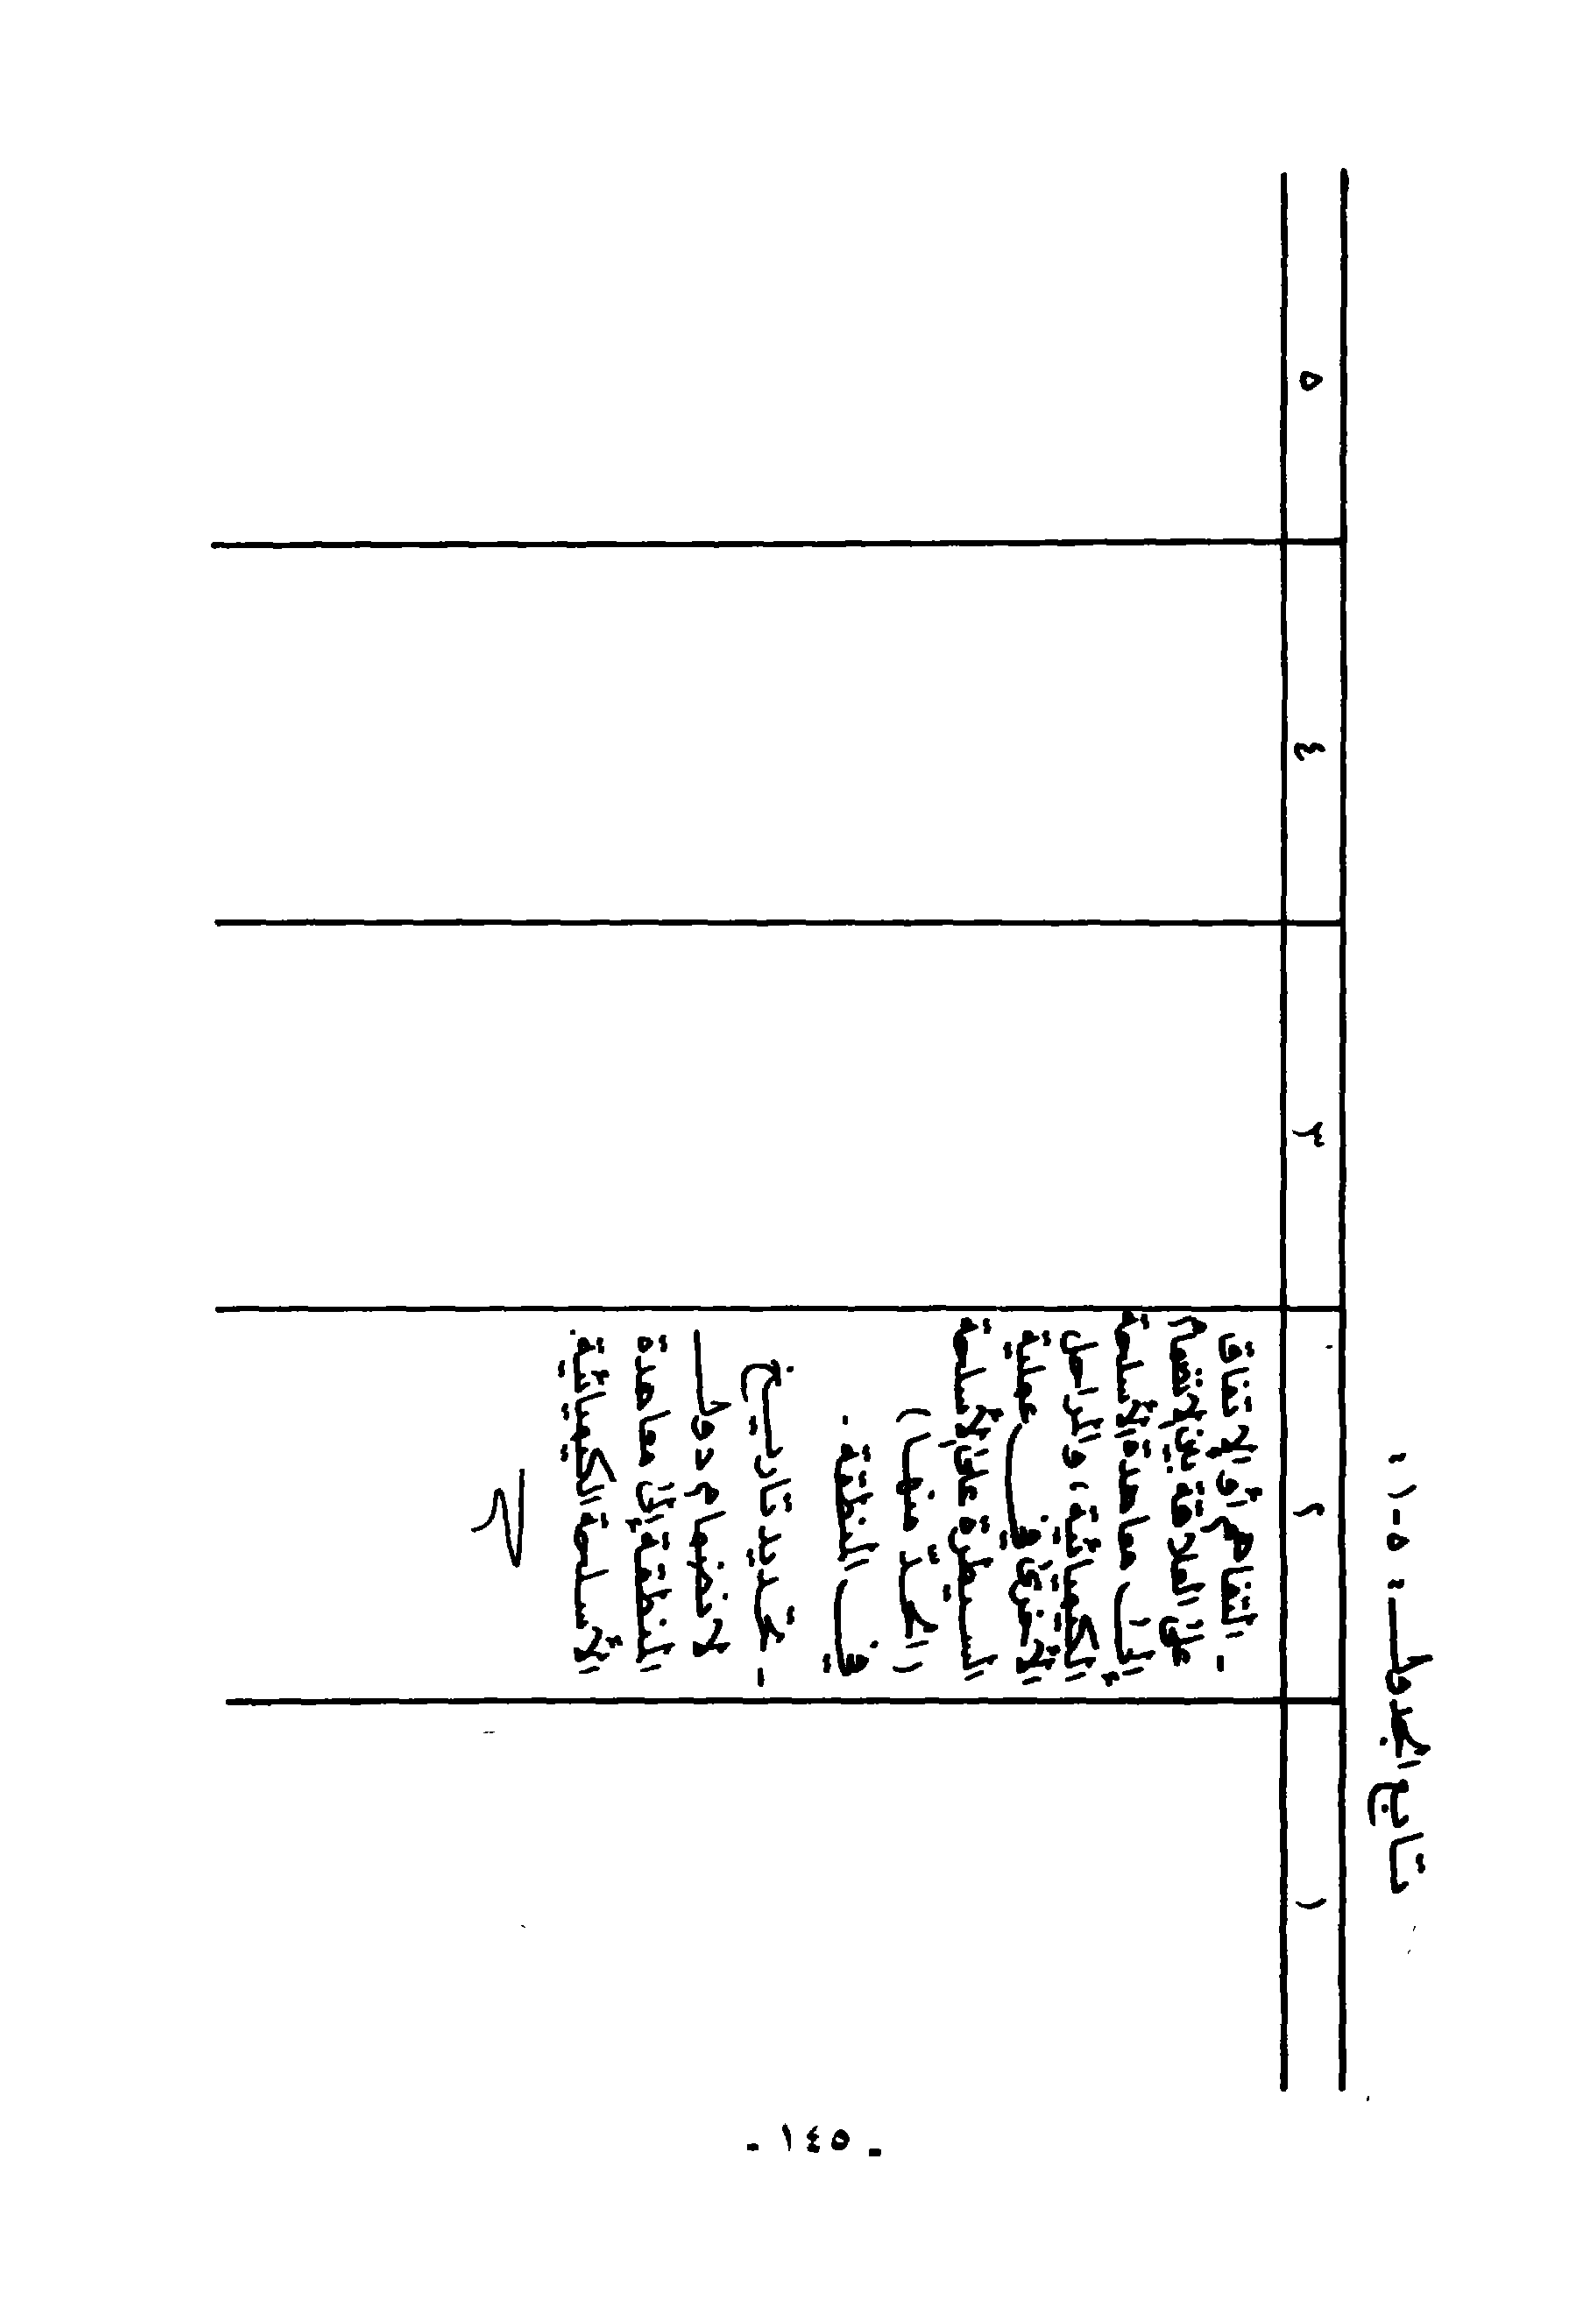 تابع الجدول : ٥-١ :
١ ٢ ٣ ٤ ٥
- التفاهم أو الاتفاق
على العلاقة بين الانضمام
إلى معاهدة الأسلحة
الكيميائية، والمراحل
الأخرى في عملية
السيطرة على الأسلحة
(الحد منها)
في المنطقة .
- تحديد تاريخ
لانضمام دول
المنطقة إلى معاهدة
الأسلحة الكيميائية.
- ١٤٥ -